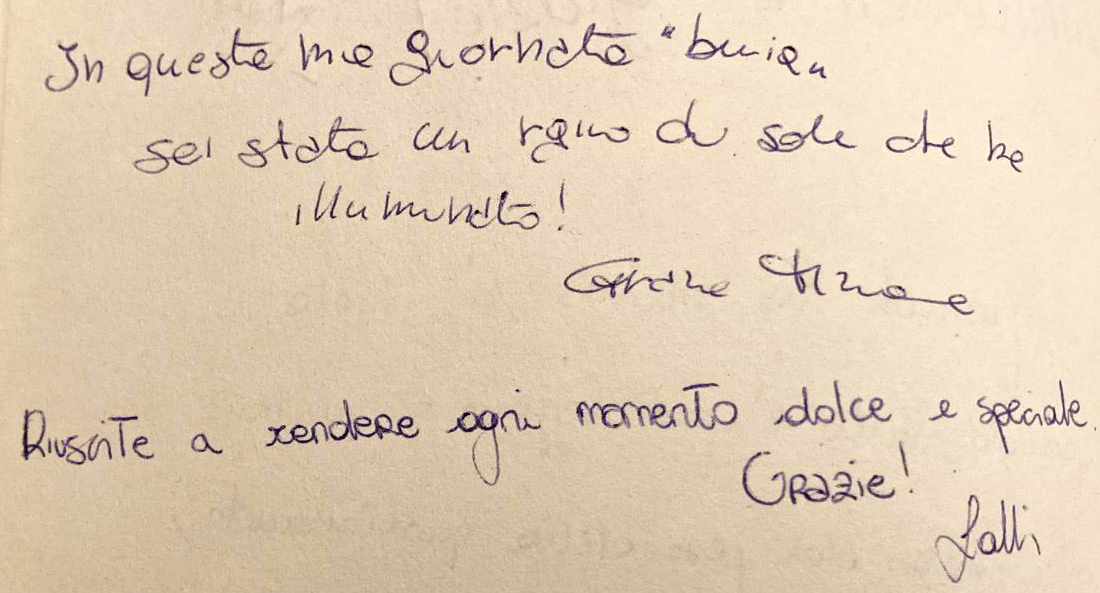 In questa mia giornata "buia"
sei stata un raggio di sole che ha
illuminato!
Grazie
Riuscite a rendere ogni momento dolce e speciale.
Grazie!
Lalli